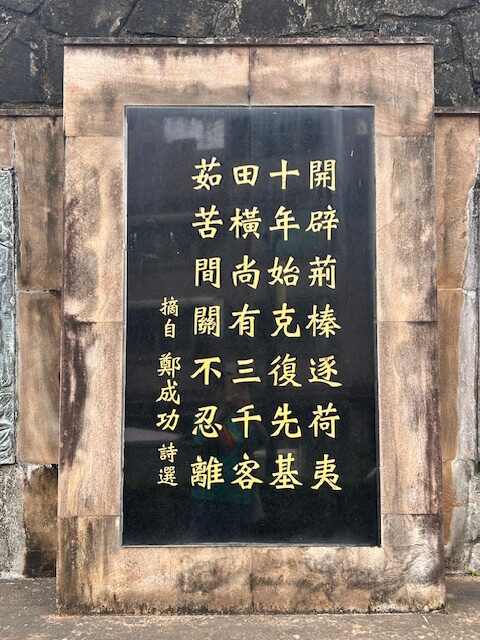 開辟荊榛逐荷夷
十年始克復先基
田橫尚有三千客
茹苦間關不忍離
摘自 鄭成功 詩選